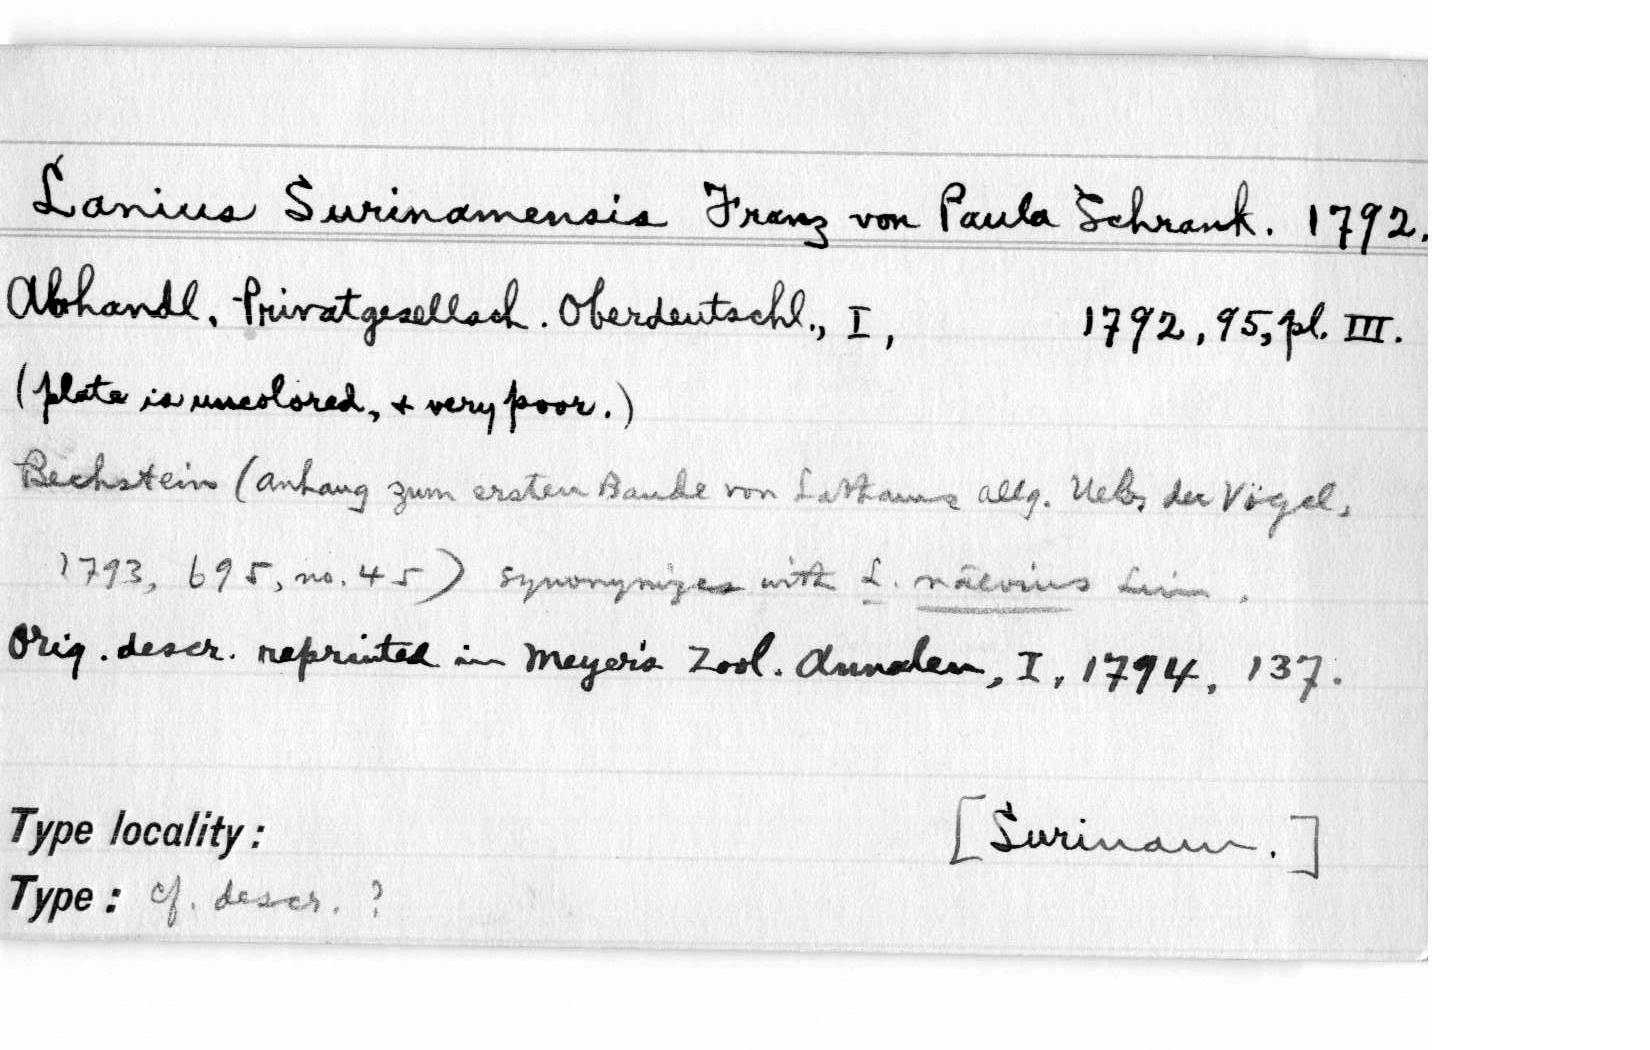 Lanius Surinamensis Franz von Paula Schrank. 1792.
Abhandl. Privatgesellsch. Oberdeutschl., I, 1792, 95, pl. III.
(plate is uncolored, + very poor.)
Bechstein (Anhang zum ersten Bande von Lathams allg. Ueb. der Vögel,
1793, 695, no. 45) synonymizes with L. naevius Linn.
Orig. descr. reprinted in Meyer's Zool. Annalen, I, 1794, 137.
Type locality: [Surinam.]
Type: cf. descr. ?